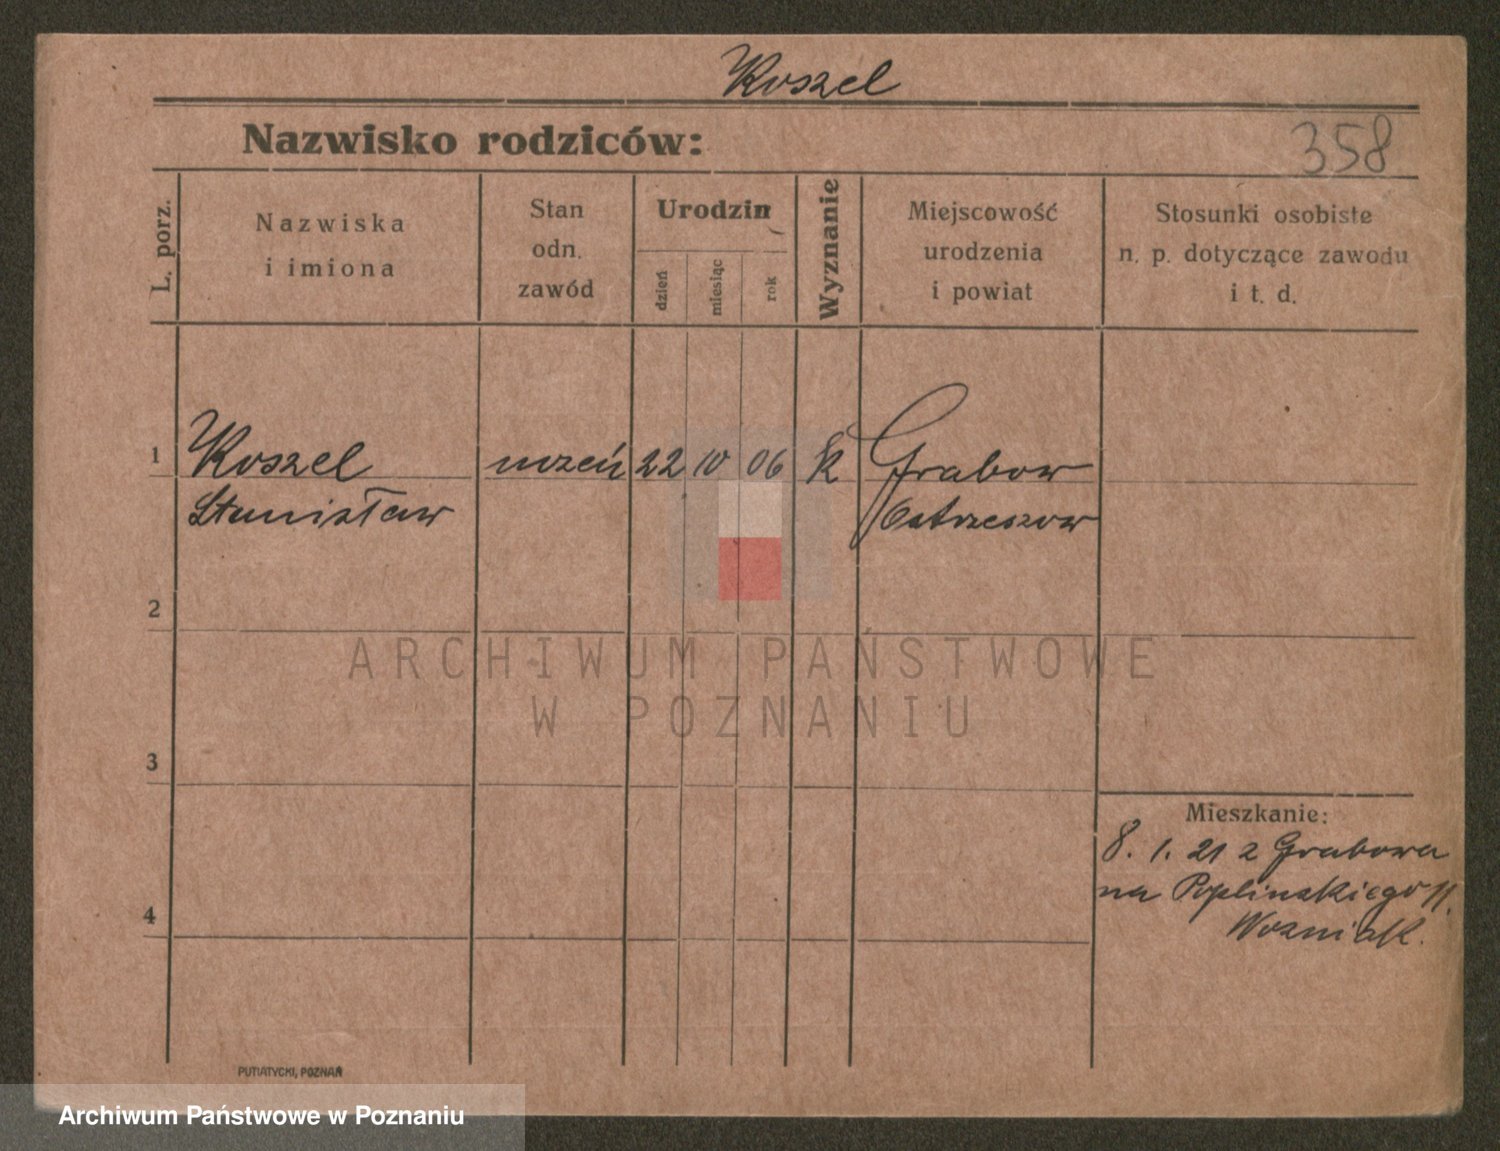 Koszel
Nazwisko rodziców:
358
L. porz.
Nazwiska
i imiona
Stan
odn.
zawód
Urodzin
dzień
miesiąc
rok
Wyznanie
Miejscowość
urodzenia
i powiat
Stosunki osobiste
n. p. dotyczące zawodu
i t. d.
1 Koszel uczeń 22 10 06 k Grabow
Stanisław Ostrzeszow
2
ARCHIWUM PAŃSTWOWE
W POZNANIU
3
Mieszkanie:
8. 1. 21 z Grabowa
na Poplinskiego 11.
Wozniak.
4
PUTIATYCKI, POZNAŃ
Archiwum Państwowe w Poznaniu